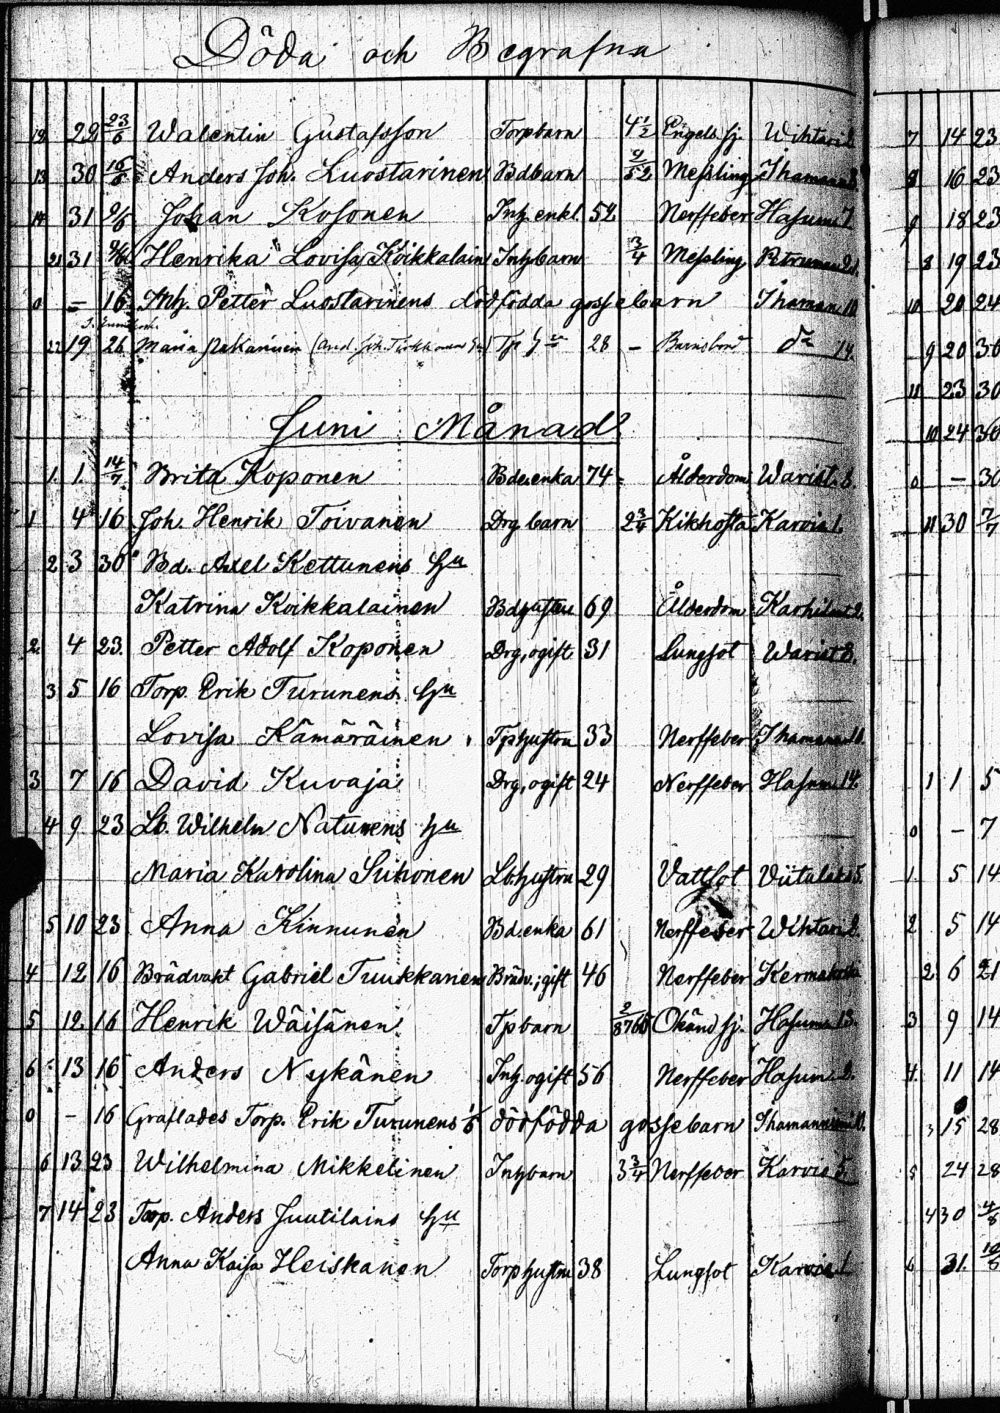 Döda och Begrafna
12 29 23/6 Walentin Gustafsson Torpbarn 4 1/2 Engels. sj. Wihtari 8.
13 30 16/6 Anders Joh. Luostarinen Bdbarn 9/52 Messling Ihamann 8.
14 31 9/6 Johan Kosonen Inh. enkl. 52 Nerffeber Hasum 7.
21 31 9/6 Henrika Lovisa Koikkalain Inhbarn 3/4 Messling Petruman
0 – 16 Inh. Petter Luostarinens dödfödda gossebarn Ihaman. 10
22 19 26 Maria Pakarinen 28 – Barnsbörd do 14.
Juni Månad
1. 1. 14/7 Brita Koponen Bde.enka 74 Ålderdom Warist. 8.
1 4 16 Joh. Henrik Toivanen Drg barn 2 3/4 Kikhosta Karvio 1.
2 3 30 Bd. Axel Kettunens hu
Katrina Koikkalainen Bdhustru 69 Ålderdom Karhilat 2.
2. 4 23. Petter Adolf Koponen Drg, ogift 31 Lungsot Warist 8.
3 5 16 Torp. Erik Turunens hu
Lovisa Kämäräinen Tphustru 33 Nerffeber Ihamann 10.
3 7 16 David Kuvaja Drg, ogift 24 Nerffeber Hasum 14.
4 9 23 Lb. Wilhelm Natunens hu
Maria Karolina Suhonen Lbhustru 29 Vattsot Viitalaks 5.
5 10 23 Anna Kinnunen Bd.enka 61 Nerffeber Wihtari 8.
4 12 16 Brådvakt Gabriel Tuukkanen Brådv.; gift 46 Nerffeber
5 12. 16 Henrik Wäisänen Tpbarn 2/8765 Okänd sj. Hasum 13.
6 13 16 Anders Nykänen Inh. ogift 56 Nerffeber Hasum 2.
0 – 16 Graflades Torp. Erik Turunens 1/6 dödfödda gossebarn Ihamanniemi 10.
6 13 23 Wilhelmina Mikkelinen Inhbarn 3 3/4 Nerffeber Karvio 5.
7 14 23 Torp. Anders Juutilains hu
Anna Kaisa Heiskanen Torphustru 38 Lungsot Karvio 1.
7 14 23
8 16 23
9 18 23
8 19 23
10 20 24
9 20 30
11 23 30
10 24 30
0 – 30
11 30 7/7
1 1 5
0 – 7
1. 5 14
2 5 14
2. 6 21
3 9 14
4. 11 14
3 15 28
5 24 28
4 30 4/8
6 31. 10/8